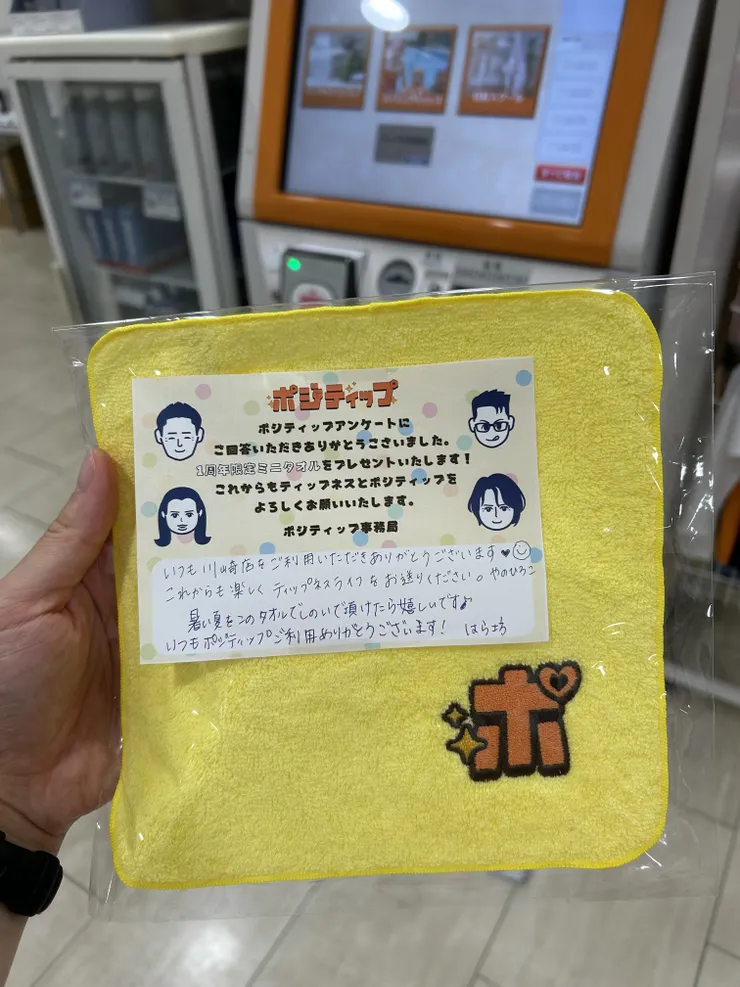 ポジティップ
ポジティップアンケートに
ご回答いただきありがとうございました。
1周年限定ミニタオルをプレゼントいたします！
これからもティップネスとポジティップを
よろしくお願いいたします。
ポジティップ事務局
いつも川崎店をご利用いただきありがとうございます♥☺
これからも楽しくティップネスライフをお送りください。やのひろこ
暑い夏をこのタオルでしのいで頂けたら嬉しいです♪
いつもポジティップご利用ありがとうございます！ はら坊
ポ